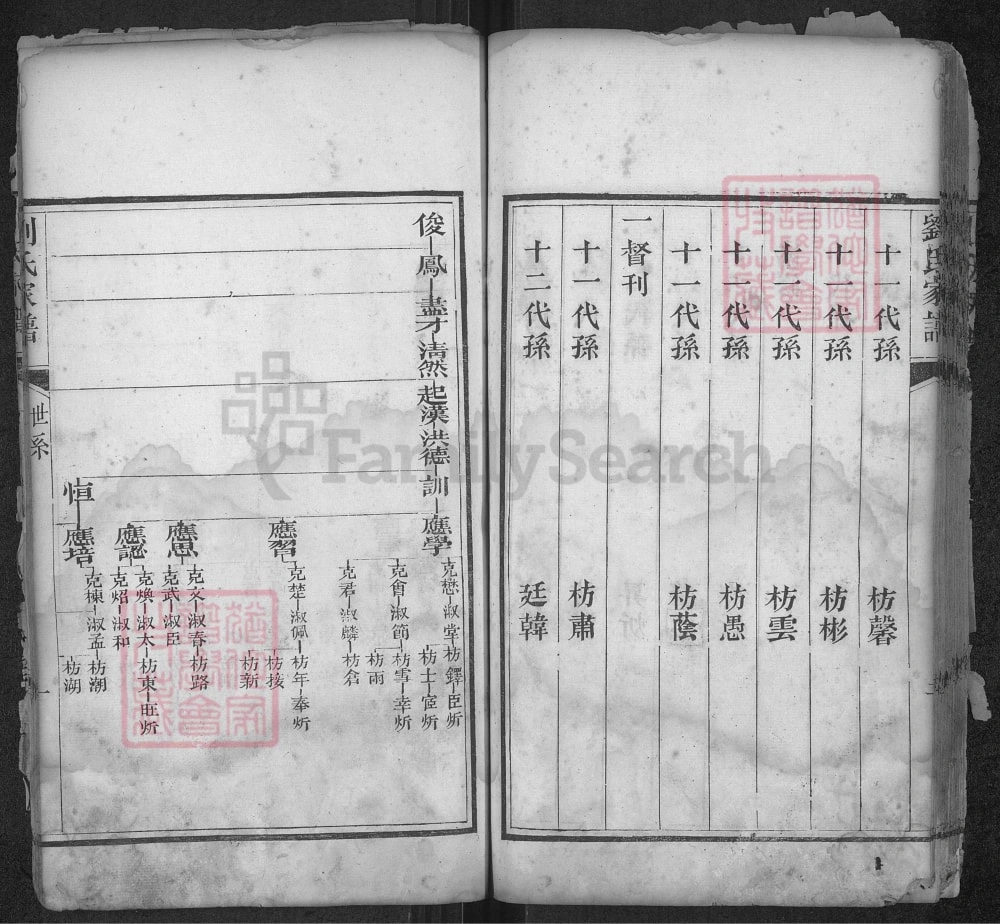 劉氏家譜
十一代孫 枋馨
十一代孫 枋彬
十一代孫 枋雲
十一代孫 枋愚
十一代孫 枋蔭
一督刊
十一代孫 枋肅
十二代孫 廷韓
俊 鳳 盡才 清然 起漢 洪德 訓 應學
克懋 淑堂 枋鐸 臣炘
枋士 宦炘
克會 淑簡 枋雪 幸炘
枋雨
克君 淑麟 枋倉
應習
克楚 淑佩 枋年 奉炘
枋接
枋新
應思
克文 淑春 枋路
克武 淑臣
應認
克煥 淑太 枋東 旺炘
克炤 淑和
恒 應培
克棟 淑孟 枋潮
枋湖
氏家譜
世系
一
FamilySearch